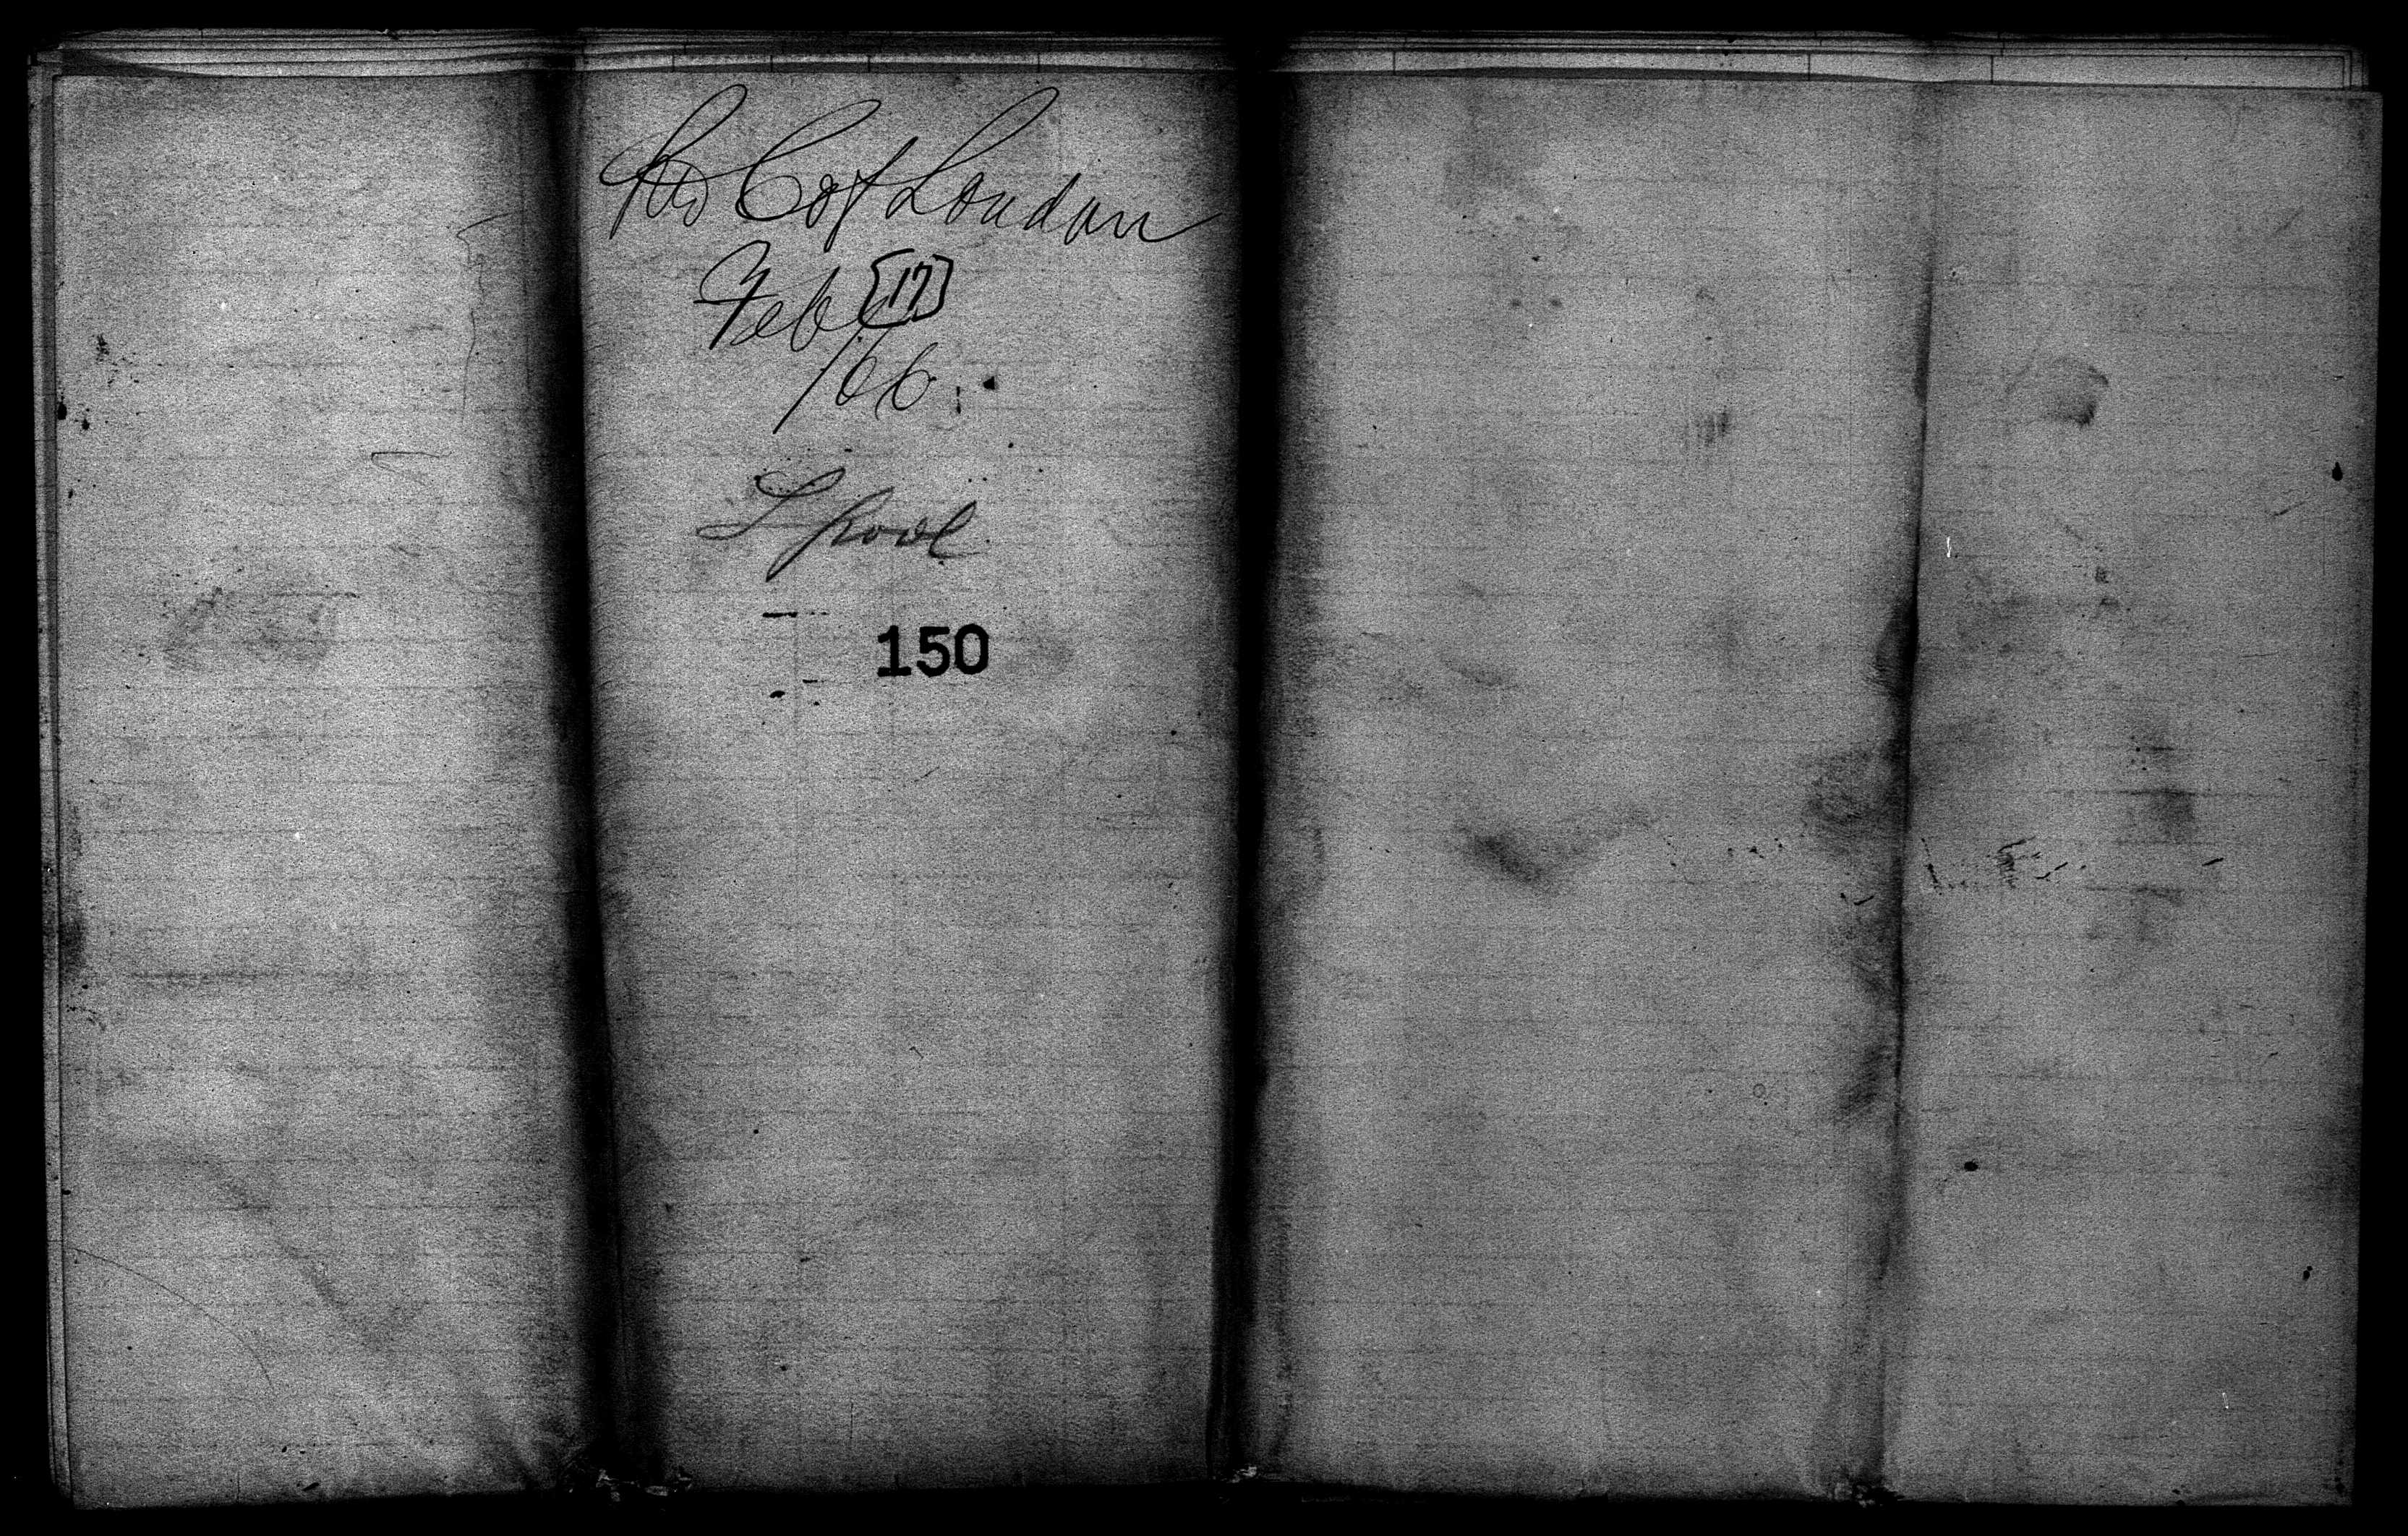 SS C of London
Feb [17]
/66
L'pool
150